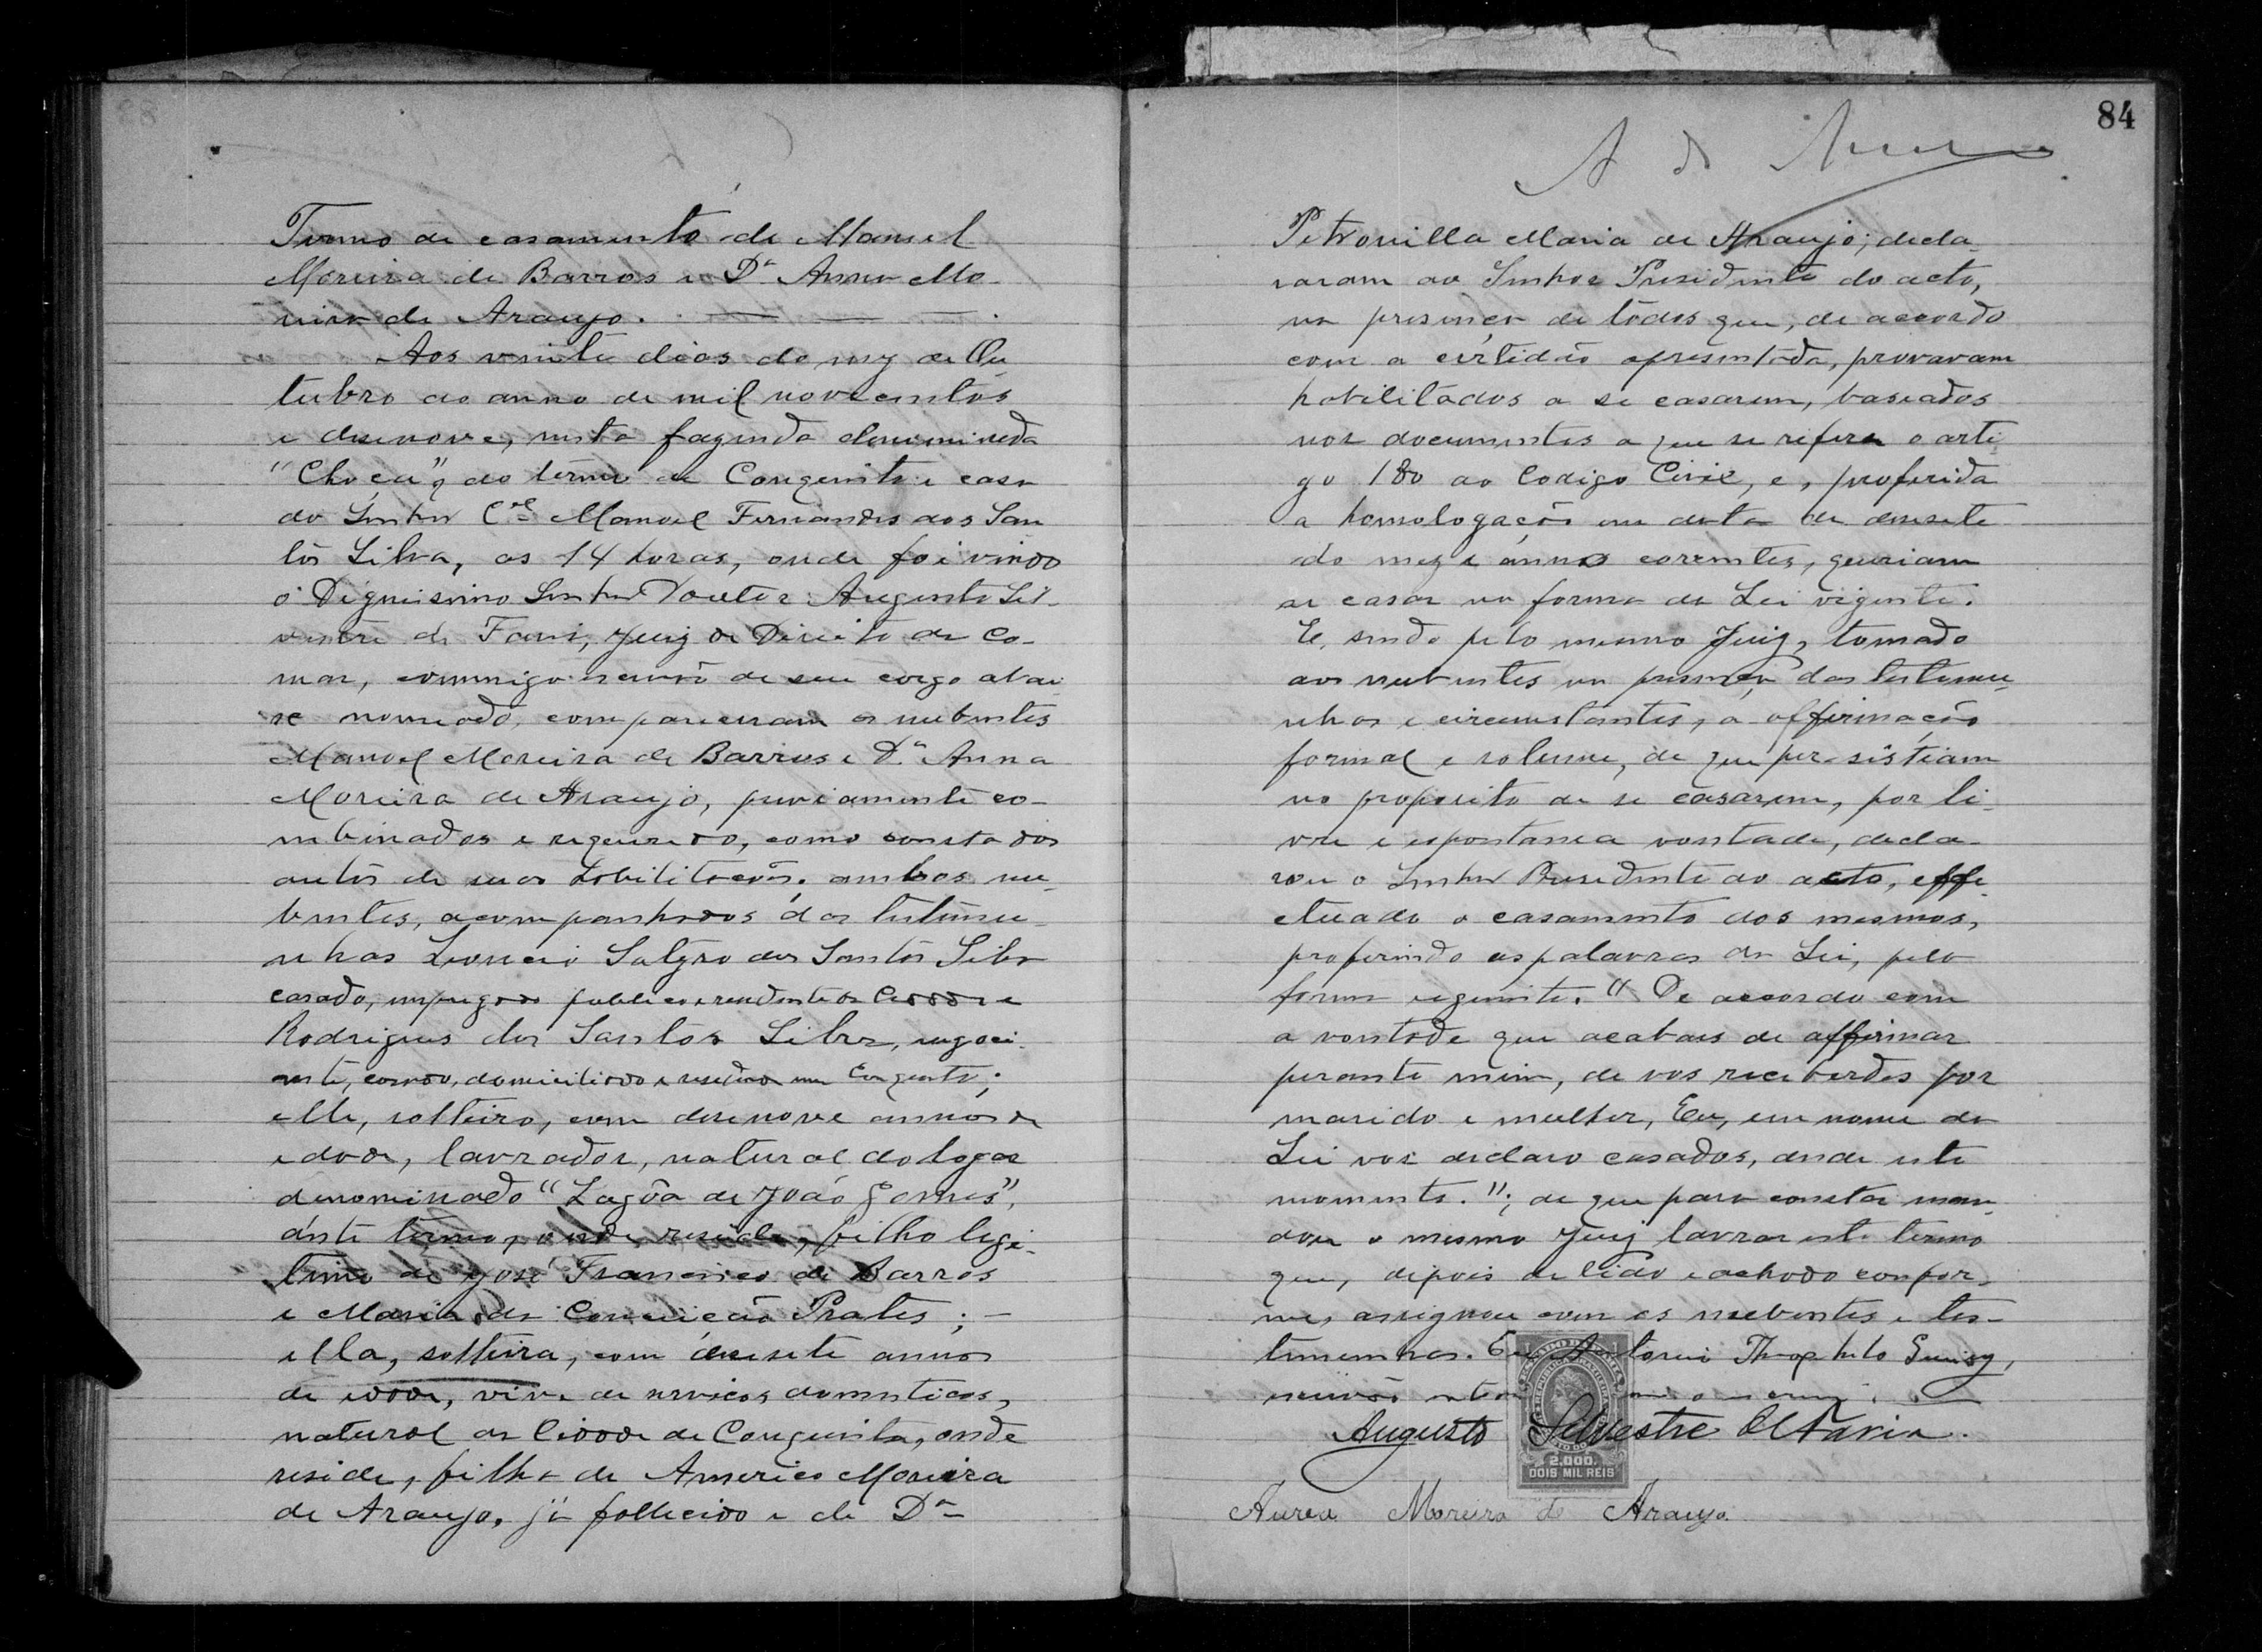 Termo de casamento de Manuel
Moreira de Barros e Dª Anna Mo
reira de Araujo.
Aos vinte dias do mez de Ou
tubro do anno de mil novecentos
e desenove, nesta fazenda denominada
"Choça", do termo de Conquista e casa
do Senhor Cel Manoel Fernandes dos San
tos Silva, as 14 horas, onde foi vindo
o Dignissimo Senhor Doutor Augusto Sil-
vestre de Faria, Juiz de Direito da Co-
marca, commigo escrivão de seu cargo abai
xo nomeado, compareceram os nubentes
Manoel Moreira de Barros e Dª Anna
Moreira de Araujo, previamente co-
mbinados e requerido, como consta dos
autos de suas habilitações. ambos nu-
bentes, acompanhados das testemu-
nhas Leoncio Satyro dos Santos Silva
casado, empregado publico e residente da Cidade e
Rodrigues dos Santos Silva, negoci-
ante, casado, domiciliado e residente em Conquista;
elle, solteiro, com desenove annos de
edade, lavrador, natural do logar
denominado "Lagôa de João Gomes",
deste termo, onde reside, filho legi-
timo de José Francisco de Barros
e Maria da Conceição Prates; —
ella, solteira, com desesete annos
de idade, vive de serviços domesticos,
natural da Cidade de Conquista, onde
reside, filha de Americo Moreira
de Araujo, já fallecido e de Dª
84
A de
Petronilla Maria de Araujo; decla
raram ao Senhor Presidente do acto,
na presença de todos que, de accordo
com a certidão apresentada, provavam
habilitados a se casarem, baseados
nos documentos a que se refere o arti
go 180 do Codigo Civil, e, proferida
a homologação em data de desesete
do mez e annos corentes, queriam
se casar na forma da Lei vigente.
E, sendo pelo mesmo Juiz, tomado
aos nubentes na presença das testemu-
nhas e circumstantes, a affirmação
formal e solemne, de que persistiam
no proposito de se casarem, por li-
vre e espontanea vontade, decla-
rou o Senhor Presidente do acto, effe-
ctuado o casamento dos mesmos,
proferindo as palavras da Lei, pela
forma seguinte. "De accordo com
a vontade que acabaes de affirmar
perante mim, de vos receberdes por
marido e mulher, Eu, em nome da
Lei vos declaro casados, desde este
momento."; de que para constar man-
dou o mesmo Juiz lavrar este termo
que, depois de lido e achado confor-
me, assignou com os nubentes e tes-
temunhas. Eu Antonio Theophilo
escrivão
Augusto Silvestre de Faria.
2,000.
DOIS MIL REIS
Aurea Moreira de Araujo.